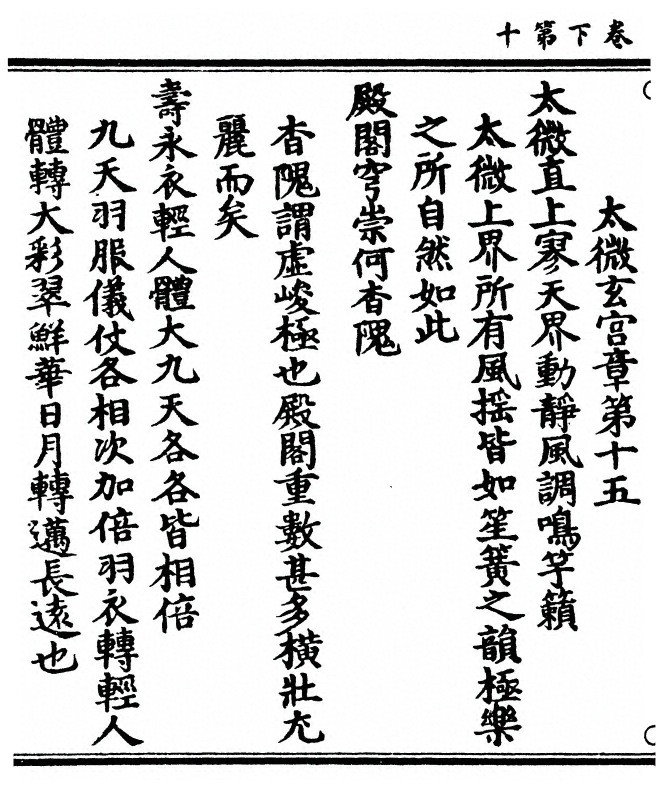 卷下第十
太微玄宮章第十五
太微直上寥天界動靜風調鳴竽籟
太微上界所有風搖皆如笙簧之韻極樂
之所自然如此
殿閣穹崇何杳隗
杳隗謂虛峻極也殿閣重數甚多橫壯充
麗而矣
壽永衣輕人體大九天各各皆相倍
九天羽服儀仗各相次加倍羽衣轉輕人
體轉大彩翠鮮華日月轉邁長遠也